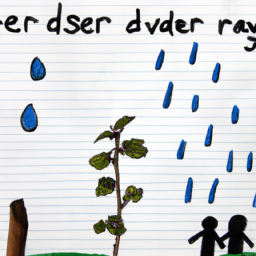 er dser dvder ray